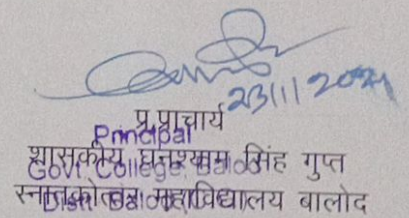 23/11/2024
प्र.प्राचार्य
Principal
शासकीय घनश्याम सिंह गुप्त
Govt. College Balod
स्नातकोत्तर महाविद्यालय बालोद
Distt. Balod